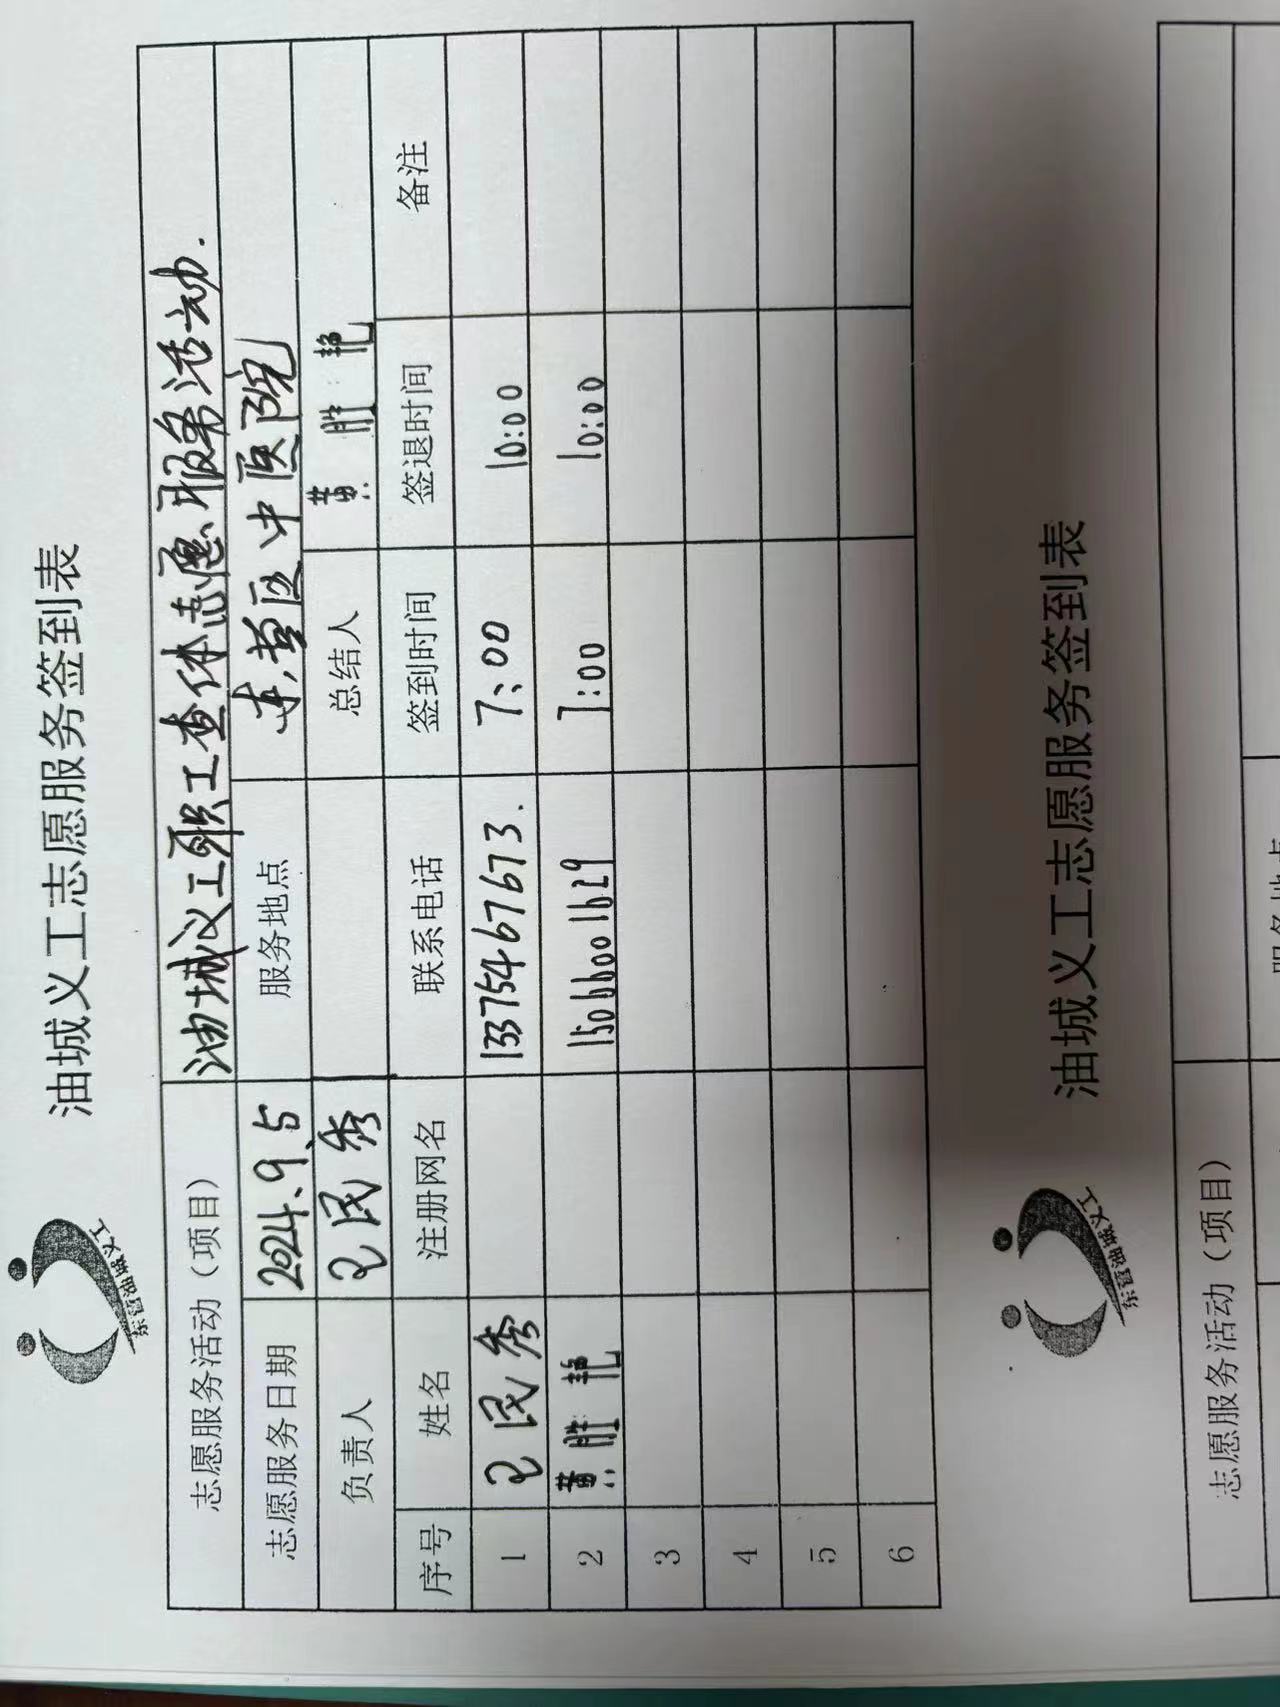 东营油城义工
油城义工志愿服务签到表
志愿服务活动（项目） 油城义工职工查体志愿服务活动.
志愿服务日期 2024.9.5 服务地点 东营区中医院
负责人 王民秀 总结人 黄胜艳
序号 姓名 注册网名 联系电话 签到时间 签退时间 备注
1 王民秀 13375467673. 7:00 10:00
2 黄胜艳 15066001629 7:00 10:00
3
4
5
6
东营油城义工
油城义工志愿服务签到表
志愿服务活动（项目）
服务地点